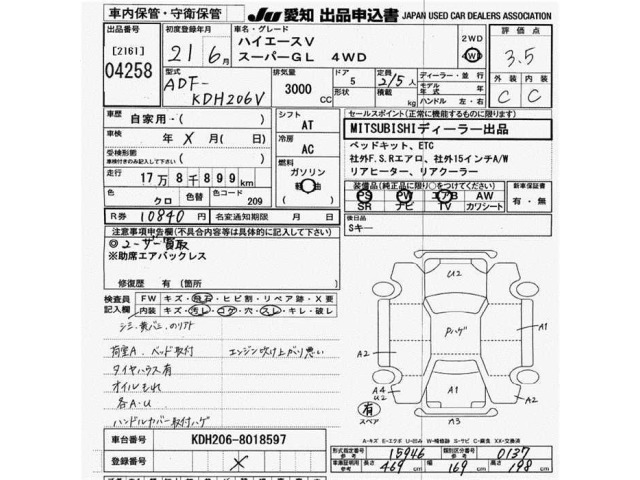 車内保管・守衛保管
JU 愛知 出品申込書 JAPAN USED CAR DEALERS ASSOCIATION
出品番号
[2161]
04258
初度登録年月
21 6月
車名・グレード
ハイエースV
スーパーGL 4WD
2WD
4WD
評価点
3.5
型式
ADF-
KDH206V
排気量
3000 CC
ドア
5
形状
定員
2/5人
積載
kg
ディーラー・並行
モデル年式 年
ハンドル 左・右
外装 内装
C C
車歴
自家用-( )
車検
年 X 月( 日)
受検形態
車検付きのみ記入して下さい
( )
走行
17万8千899km
色
クロ
色替
色コード
209
R券 10840円 名変通知期限 月 日
シフト
AT
冷房
AC
燃料
ガソリン
軽油
セールスポイント(正常に機能するものに限ります)
MITSUBISHIディーラー出品
ベッドキット、ETC
社外F.S.Rエアロ、社外15インチA/W
リアヒーター、リアクーラー
装備品(純正品に限り○をつけてください)
PS PW エアB AW
SR ナビ TV カワシート
新車保証書
有・無
注意事項申告欄(不具合内容等は具体的に記入して下さい)
◎ユーザー買取
※助席エアバックレス
修復歴 有 (箇所
後日品
Sキー
検査員
記入欄
FW キズ・飛石・ヒビ割・リペア跡・X要
内装 キズ・汚レ・コゲ・穴・スレ・キレ・破レ
シミ、黄バミ、のリ下
荷室A、ベッド取付 エンジン吹け上がり悪い
タイヤハウス有
オイルもれ
各A・U
ハンドルカバー取付ハゲ
U2
Pハゲ
A1
A1
A2
A4
U2
A2
A3
有
スペア
A-キズ E-エクボ U-凹み W-補修跡 S-サビ C-腐食 XX-交換済
車台番号 KDH206-8018597
登録番号 X
形式指定番号
参考
15946
類別区分番号
参考
0137
車検証明用
参考
長さ 469cm 幅 169cm 高さ 198cm